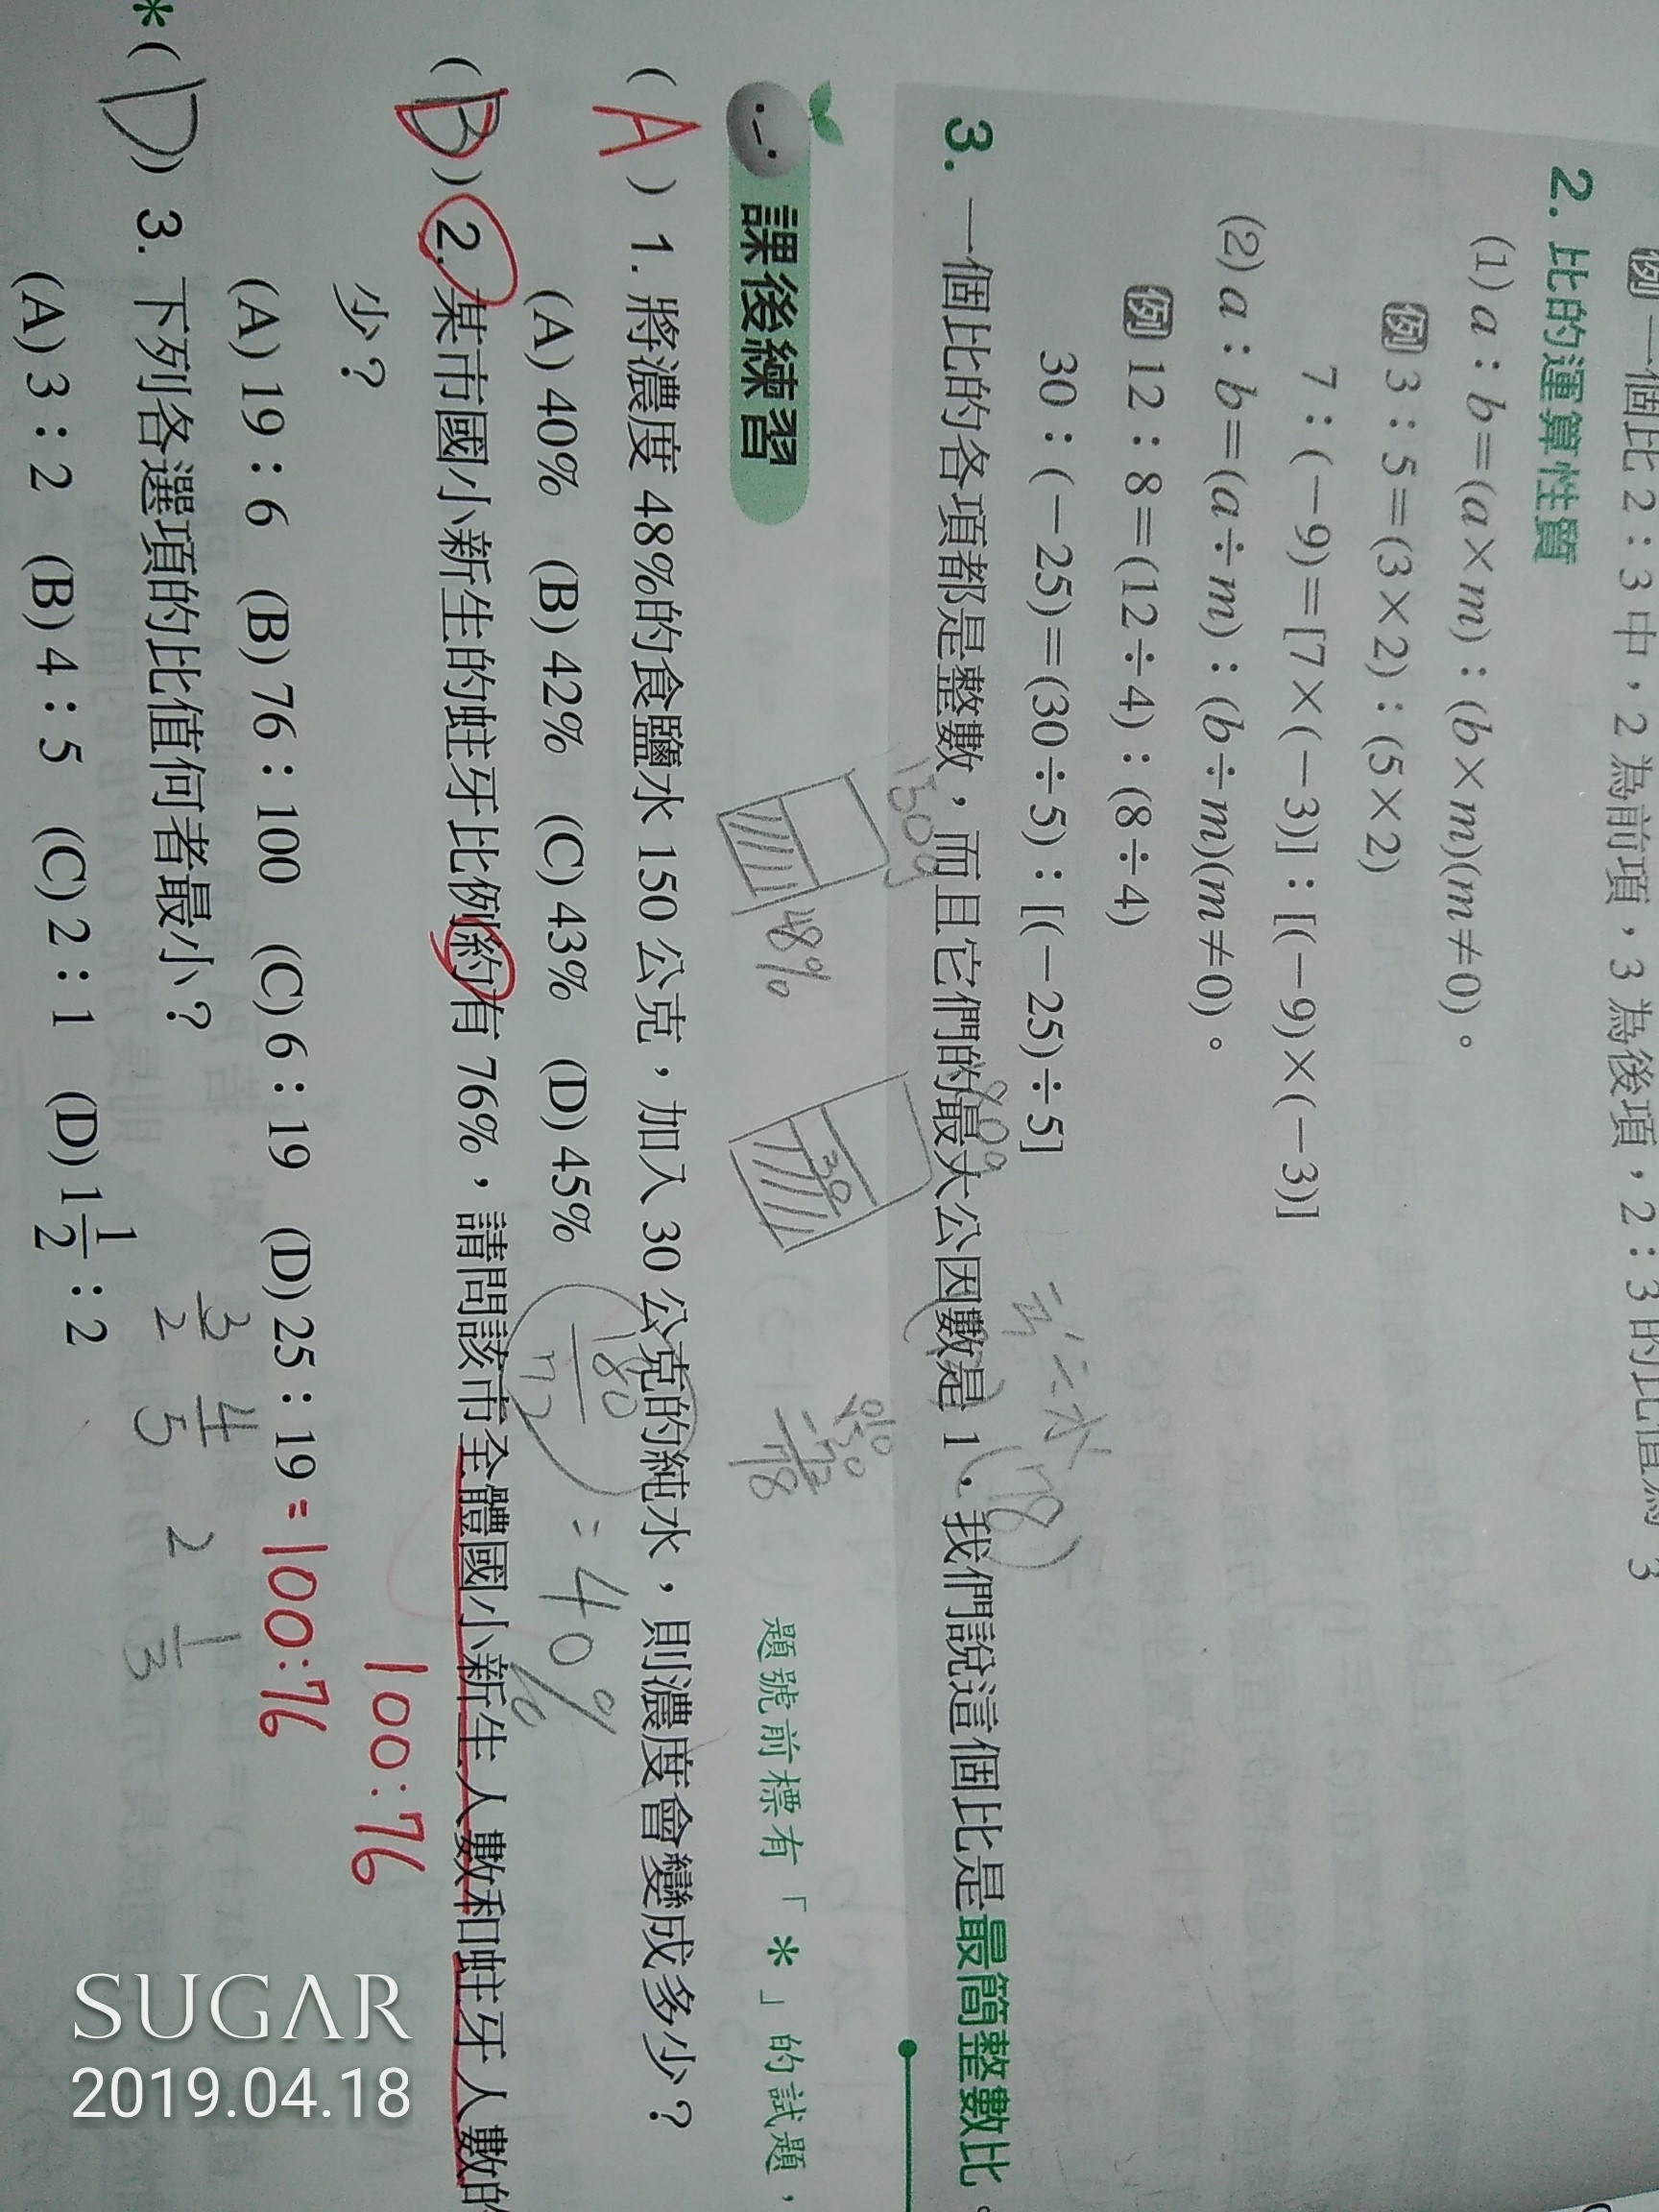 例 一個比 2：3 中，2 為前項，3 為後項，2：3 的比值為 3
2. 比的運算性質
(1) a：b＝(a×m)：(b×m)(m≠0)。
例 3：5＝(3×2)：(5×2)
7：(－9)＝[7×(－3)]：[(－9)×(－3)]
(2) a：b＝(a÷m)：(b÷m)(m≠0)。
例 12：8＝(12÷4)：(8÷4)
30：(－25)＝(30÷5)：[(－25)÷5]
3. 一個比的各項都是整數，而且它們的最大公因數是 1，我們說這個比是最簡整數比。
150g
48%
30
課後練習
題號前標有「＊」的試題，
( A ) 1. 將濃度 48%的食鹽水 150 公克，加入 30 公克的純水，則濃度會變成多少？
(A) 40% (B) 42% (C) 43% (D) 45%
180
72
= 40%
( D ) 2. 某市國小新生的蛀牙比例約有 76%，請問該市全體國小新生人數和蛀牙人數的
少？
100:76
(A) 19：6 (B) 76：100 (C) 6：19 (D) 25：19 = 100:76
＊( D ) 3. 下列各選項的比值何者最小？
3/2 4/5 2 1/3
(A) 3：2 (B) 4：5 (C) 2：1 (D) 1 1/2：2
SUGAR
2019.04.18